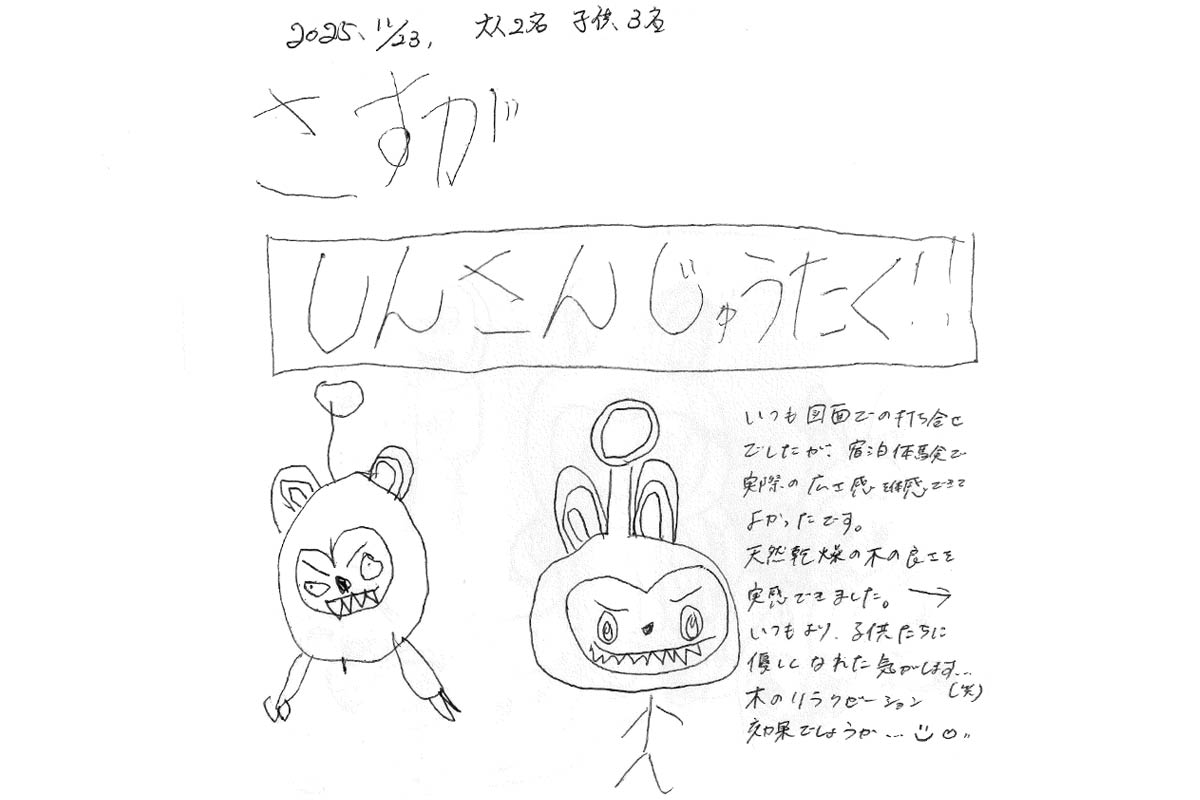 2025、11/23、 大人2名 子供、3名
さすが
しんさんじゅうたく!!
いつも図面での打ち合せ
でしたが、宿泊体験で
実際の広さ感 体感できて
よかったです。
天然乾燥の木の良さを
実感できました。 →
いつもより、子供たちに
優しくなれた気がします...
(笑)
木のリラクゼーション
効果でしょうか...